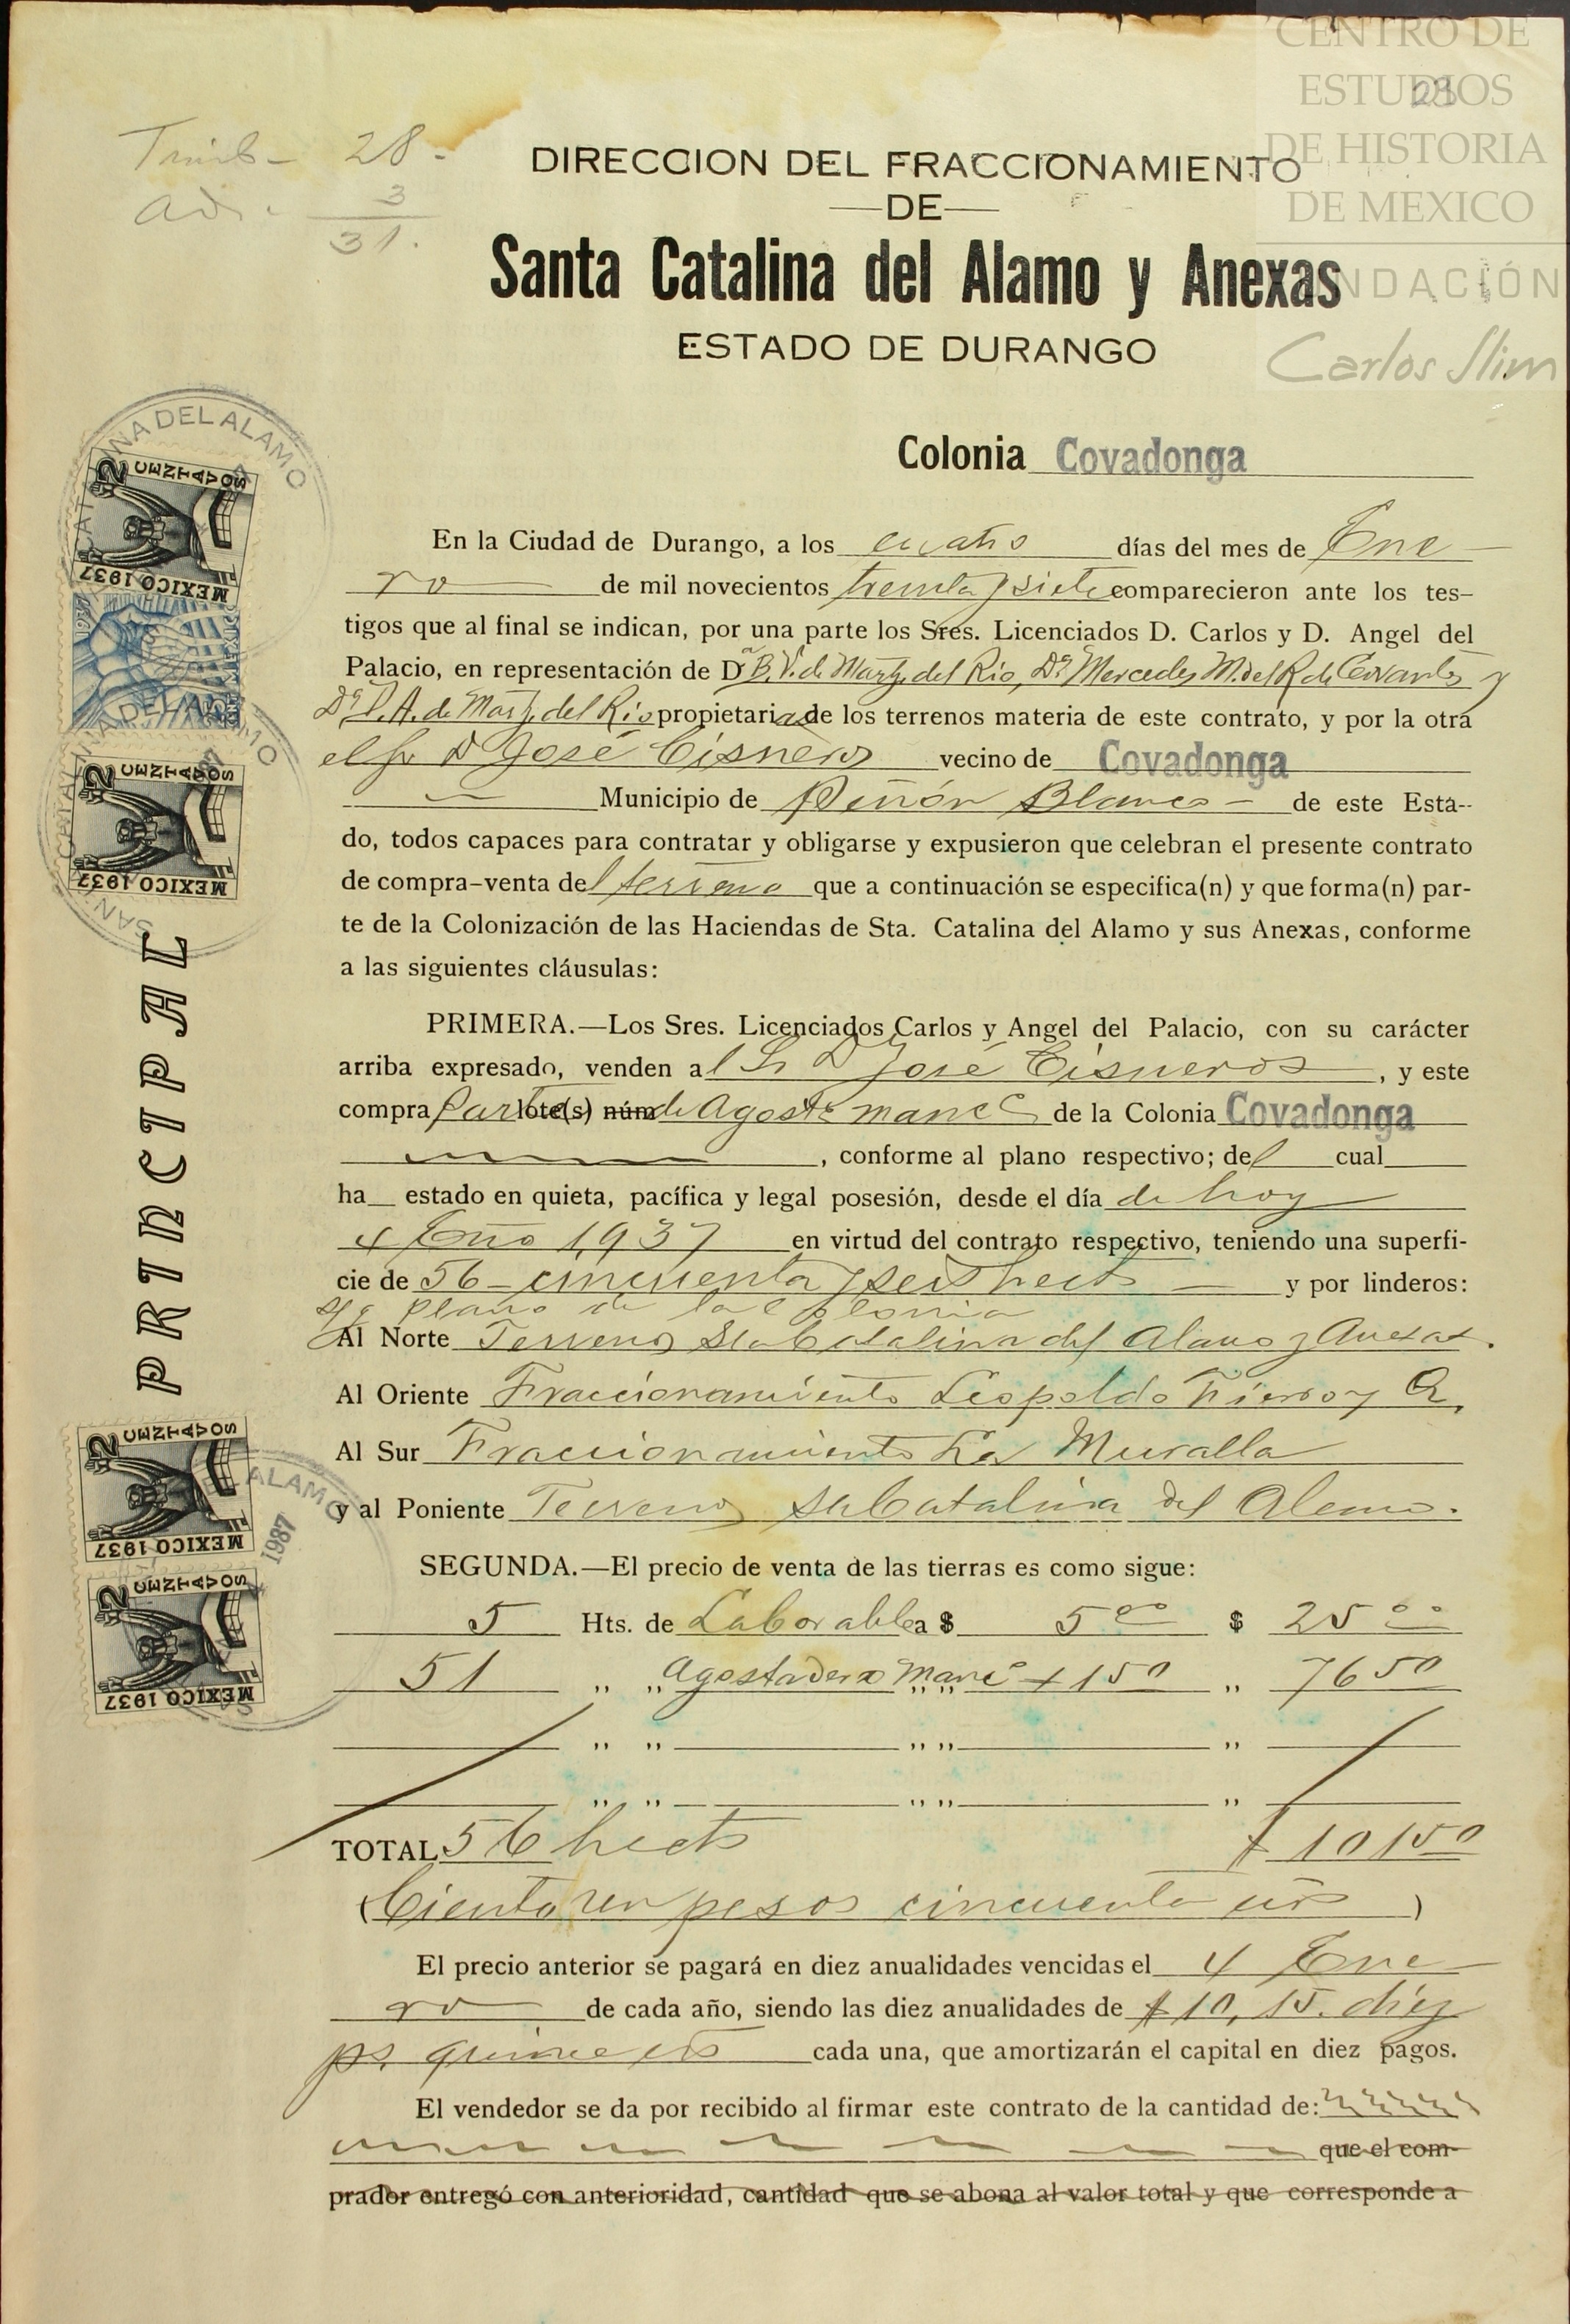 CENTRO DE
ESTUDIOS
DE HISTORIA
DE MEXICO
FUNDACIÓN
Carlos Slim
28.
3
31.
DIRECCION DEL FRACCIONAMIENTO
—DE—
Santa Catalina del Alamo y Anexas
ESTADO DE DURANGO
Colonia Covadonga
En la Ciudad de Durango, a los cuatro días del mes de Ene-
ro de mil novecientos treinta y siete comparecieron ante los tes-
tigos que al final se indican, por una parte los Sres. Licenciados D. Carlos y D. Angel del
Palacio, en representación de Dª B. V. de Martz. del Rio, Dª Mercedes M. del R. de Cervantes y
Dª P. A. de Martz. del Rio propietarias de los terrenos materia de este contrato, y por la otra
el Sr D José Cisneros vecino de Covadonga
Municipio de Peñón Blanco de este Esta-
do, todos capaces para contratar y obligarse y expusieron que celebran el presente contrato
de compra-venta del terreno que a continuación se especifica(n) y que forma(n) par-
te de la Colonización de las Haciendas de Sta. Catalina del Alamo y sus Anexas, conforme
a las siguientes cláusulas:
PRIMERA.—Los Sres. Licenciados Carlos y Angel del Palacio, con su carácter
arriba expresado, venden al Sr D José Cisneros, y este
compra Parte lote(s) núm de Agost mane de la Colonia Covadonga
, conforme al plano respectivo; del cual
ha estado en quieta, pacífica y legal posesión, desde el día de hoy
4 Eno 1937 en virtud del contrato respectivo, teniendo una superfi-
cie de 56- cincuenta y seis hects y por linderos:
plano de la Colonia
Al Norte Terrenos Sta Catalina del Alamo y Anexas.
Al Oriente Fraccionamiento Leopoldo Fierro y
Al Sur Fraccionamiento La Muralla
y al Poniente Terrenos Sta Catalina del Alamo.
SEGUNDA.—El precio de venta de las tierras es como sigue:
5 Hts. de Laborable a $ 5 00 $ 25 00
51 ,, ,, Agostadero ,, ,, 1 50 ,, 76 50
,, ,, ,, ,, ,,
,, ,, ,, ,, ,,
TOTAL 56 hects $ 101 50
(Ciento un pesos cincuenta cts)
El precio anterior se pagará en diez anualidades vencidas el 4 Ene-
ro de cada año, siendo las diez anualidades de $ 10,15. diez
ps. quince cts cada una, que amortizarán el capital en diez pagos.
El vendedor se da por recibido al firmar este contrato de la cantidad de:
que el com-
prador entregó con anterioridad, cantidad que se abona al valor total y que corresponde a
PRINCIPAL
2 CENTAVOS
MEXICO 1937
2 CENTAVOS
MEXICO 1937
2 CENTAVOS
MEXICO 1937
2 CENTAVOS
MEXICO 1937